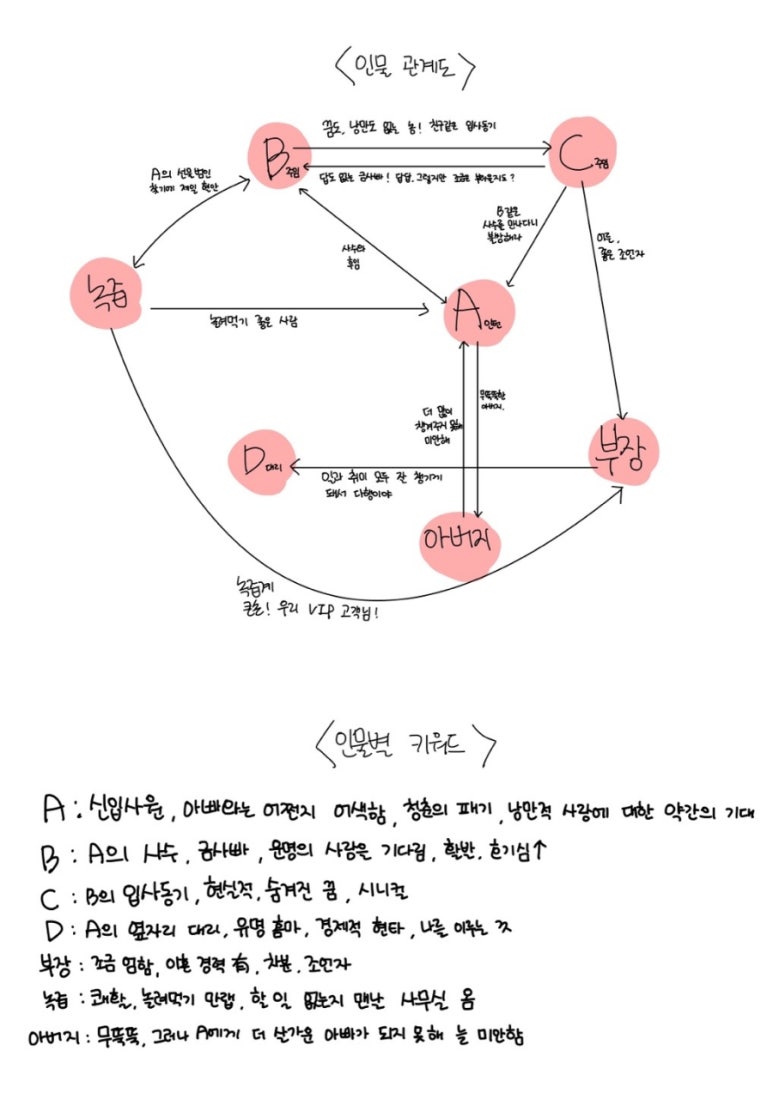 <인물 관계도>
꿈도, 낭만도 없는 놈! 친구같은 입사동기
B 주임
C 주임
답도 없는 금사빠! 답답. 그렇지만 조금은 부러울지도?
A의 선물범인
찾기에 제일 현안
B같은
사수를 만나다니
불쌍해라
사수와
후임
이모,
좋은 조언자
녹즙
놀려먹기 좋은 사람
A 인턴
더 많이
챙겨주지 못해
미안해
무뚝뚝한
아버지.
부장
D 대리
일과 취미 모두 잘 챙기게
돼서 다행이야
아버지
녹즙계
큰손! 우리 VIP 고객님!
<인물별 키워드>
A : 신입사원, 아빠와는 어쩐지 어색함, 청춘의 패기, 낭만적 사랑에 대한 약간의 기대
B : A의 사수, 금사빠, 운명의 사랑을 기다림, 활발, 호기심↑
C : B의 입사동기, 현실적, 숨겨진 꿈, 시니컬
D : A의 옆자리 대리, 유명 홈마, 경제적 현타, 나를 이루는 것
부장 : 조금 엄함, 이혼 경력 有, 차분, 조언자
녹즙 : 쾌활, 놀려먹기 만랩, 할 일 없는지 맨날 사무실 옴
아버지 : 무뚝뚝, 그러나 A에게 더 살가운 아빠가 되지 못해 늘 미안함